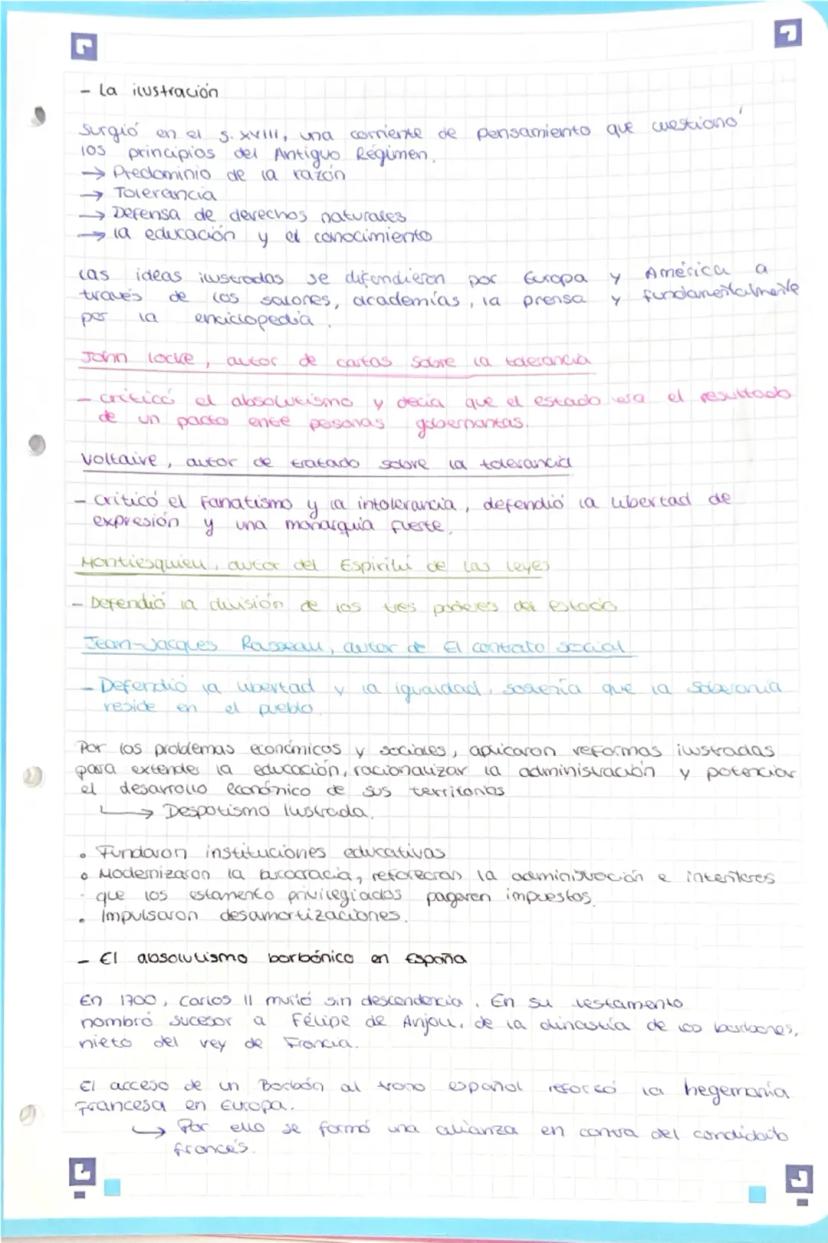 - La ilustración
Surgió en el s. XVIII, una corriente de pensamiento que cuestionó
los principios del Antiguo Régimen.
→ Predominio de la razón
→ Tolerancia
→ Defensa de derechos naturales
→ la educación y el conocimiento
Las ideas ilustradas se difundieron por Europa y América a
través de los salones, academías, la prensa y fundamentalmente
por la enciclopedia.
John Locke, autor de cartas sobre la tolerancia
- criticó el absolutismo y decía que el estado era el resultado
de un pacto entre personas gobernantas.
Voltaire, autor de tratado sobre la tolerancia
- criticó el fanatismo y la intolerancia, defendió la libertad de
expresión y una monarquía fuerte.
Montiesquieu, autor del Espíritu de las leyes
- Defendió la división de los tres poderes del estado
Jean-Jacques Rosseau, autor de El contrato social
- Defendió la libertad y la igualdad, sostenía que la soberanía
reside en el pueblo.
Por los problemas económicos y sociales, aplicaron reformas ilustradas
para extender la educación, racionalizar la administración y potenciar
el desarrollo económico de sus territorios
→ Despotismo Ilustrada.
• Fundaron instituciones educativas
• Modernizaron la burocracia, la administración e
que los estamento privilegiados pagaran impuestos.
• Impulsaron desamortizaciones.
- El absolutismo borbónico en España
En 1700, Carlos II murió sin descendencia. En su testamento
nombró sucesor a Félipe de Anjou, de la dinastía de los borbones,
nieto del rey de Francia.
El acceso de un Borbón al trono español reforzó la hegemonía
Francesa en Europa.
→ Por ello se formó una alianza en contra del candidato
francés.